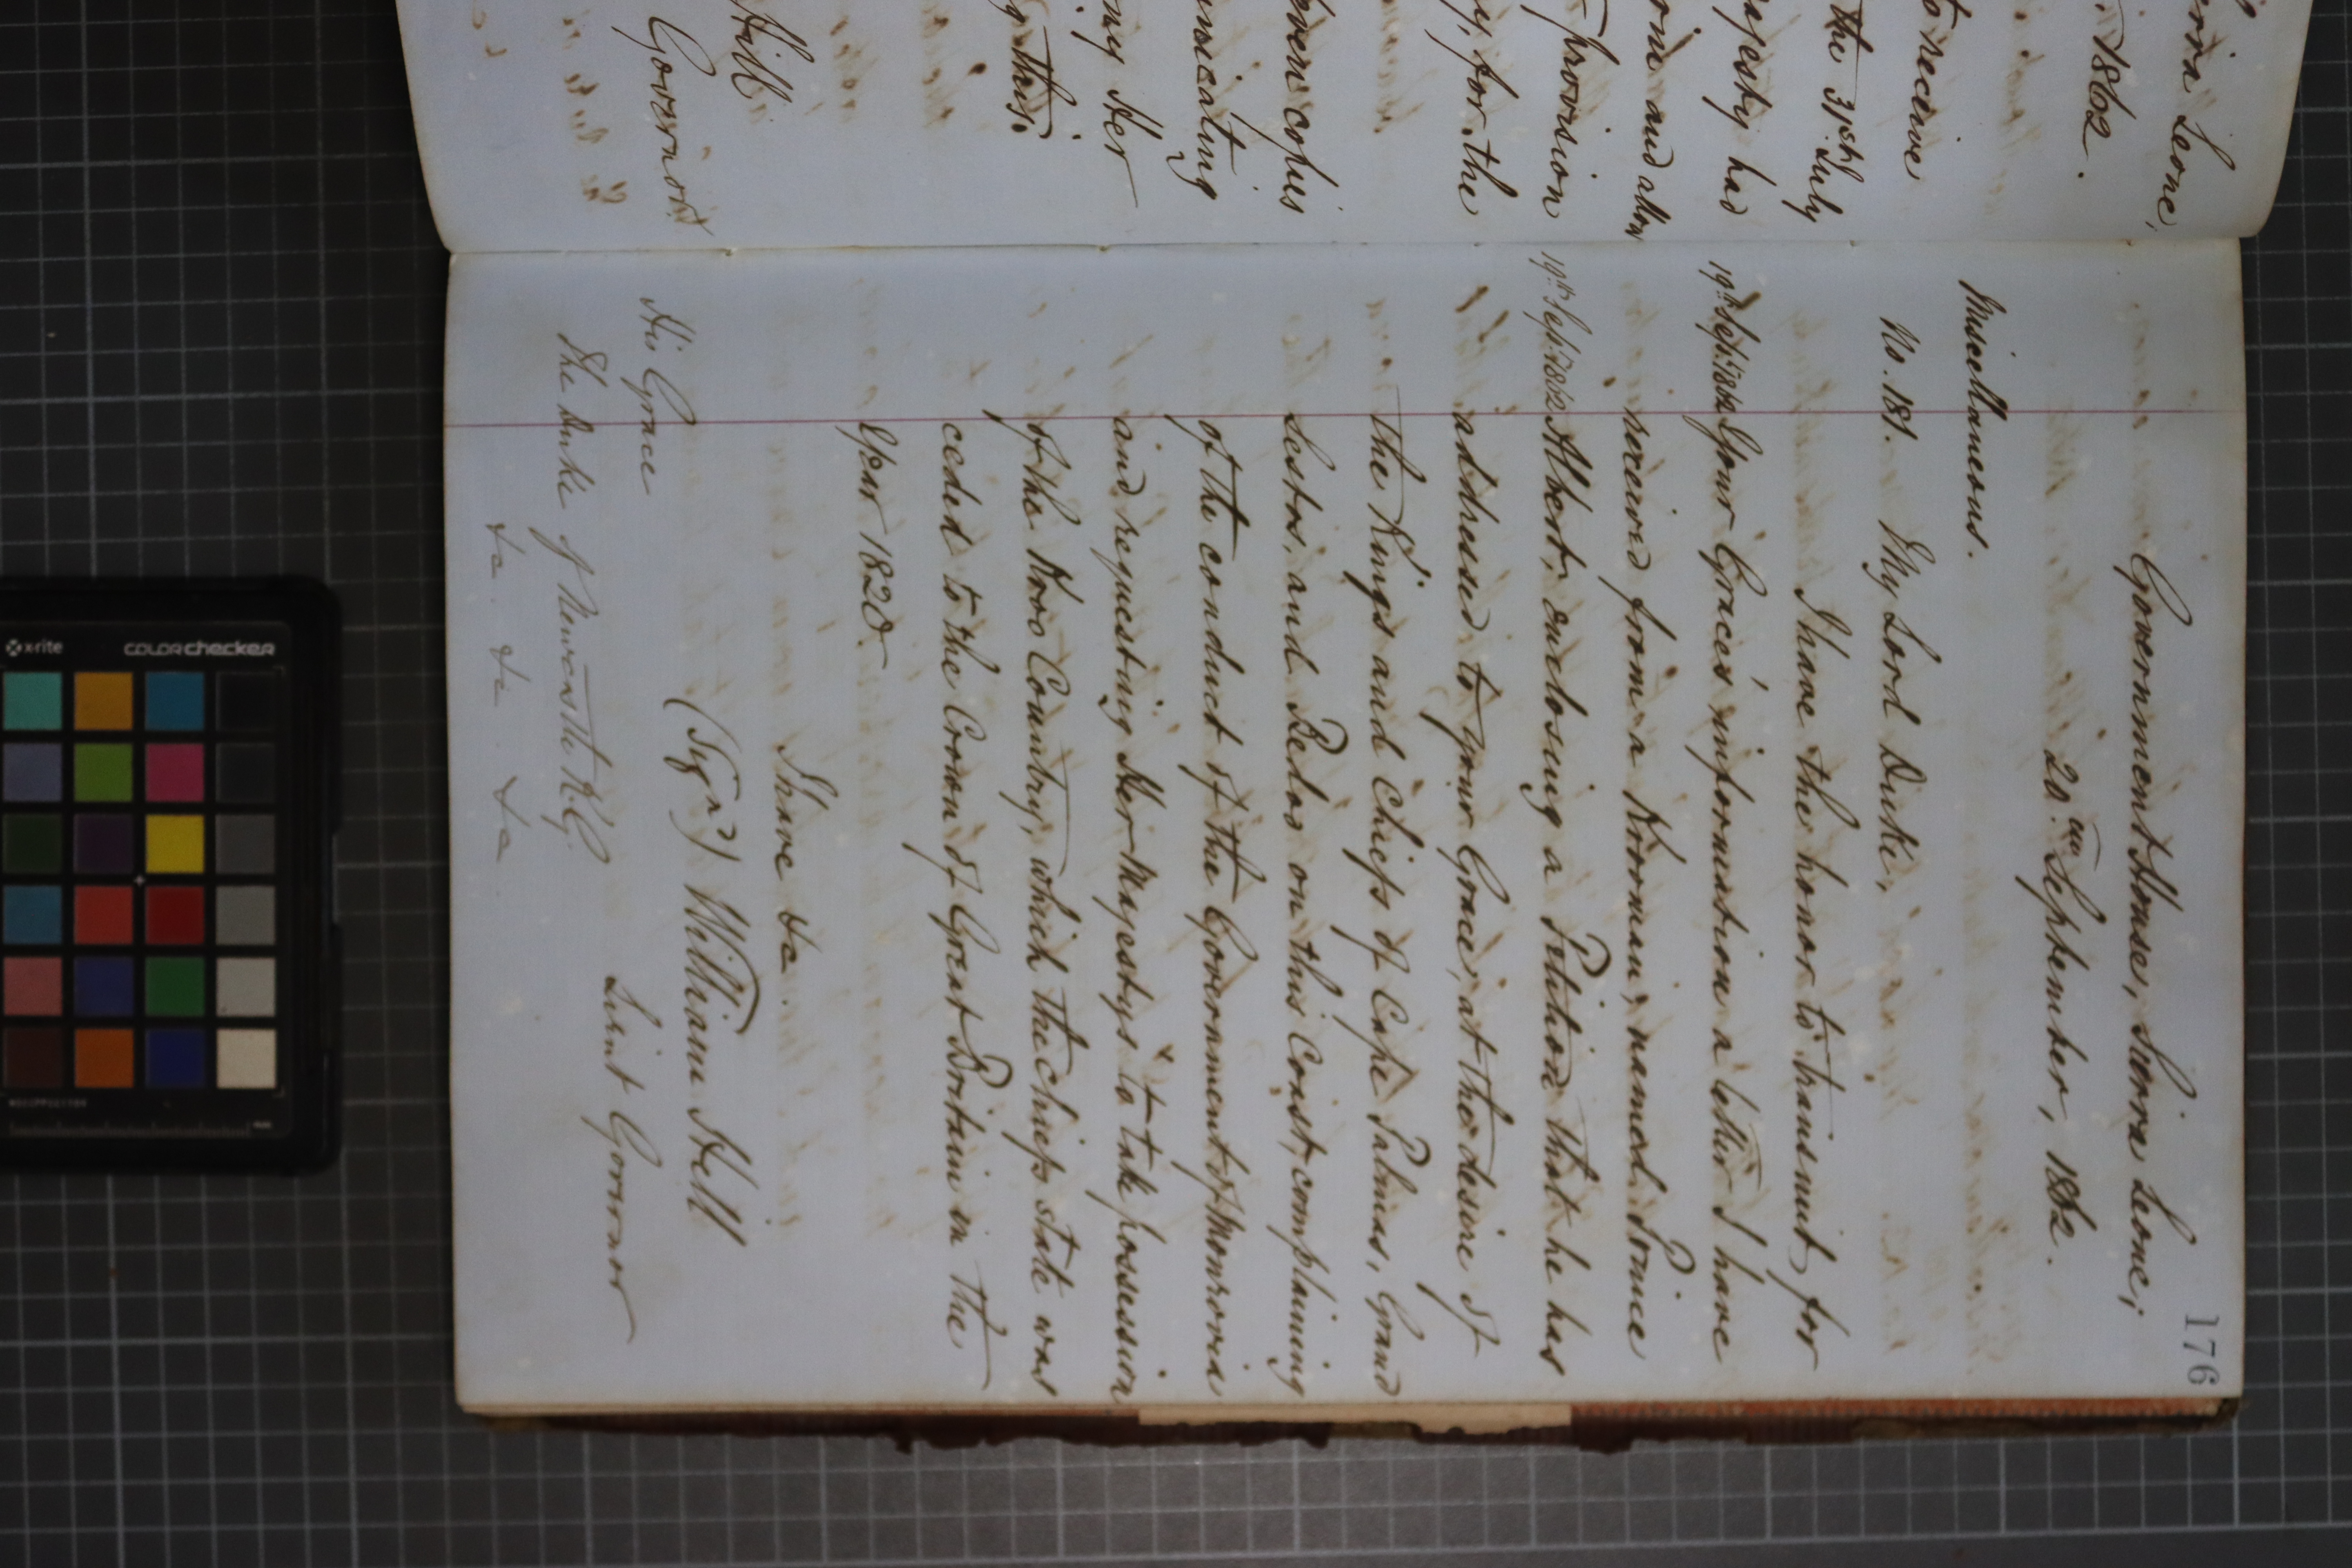 ierra Leone,
1862.
to receive
the 31st July
ajesty had
orm and allow
provision
y, for the
even copies
unicating
my Her
g this.
Hill
Governor
176
Government House, Sierra Leone,
20th September, 1862.
Miscellaneous.
No. 181. My Lord Duke,
I have the honor to transmit, for
19th Sept. 1862 Your Grace's information a letter I have
received from a Krooman, named Prince
19th Sept. 1862 Albert, enclosing a Petition that he has
addressed to your Grace, at the desire of
the Kings and Chiefs of Cape Palmas, Grand
Sestos, and Bedoo on this Coast, complaining
of the conduct of the Government of Monrovia
and requesting Her Majestys to take possession
of the Kroo Country, which the chiefs state was
ceded to the Crown of Great Britain in the
Year 1820.
I have &c.
(Sign'd) William Hill
Lieut Governor
His Grace
The Duke of Newcastle K.G.
&c. &c. &c.
x-rite colorchecker